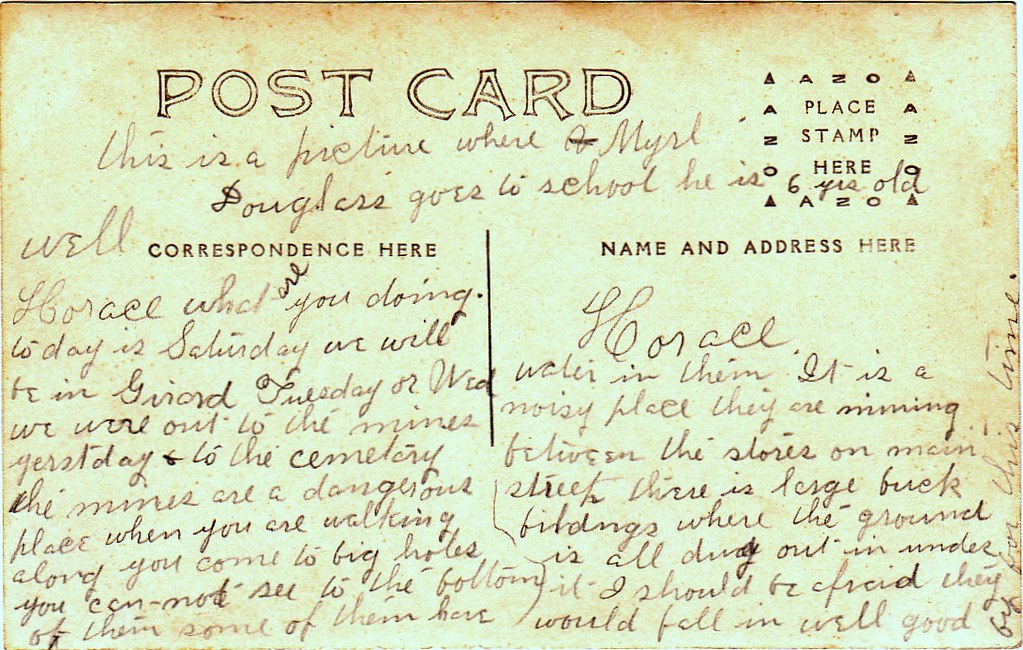 POST CARD
AZO
PLACE
STAMP
HERE
AZO
this is a picture where Myrl
Douglass goes to school he is 6 yrs old
CORRESPONDENCE HERE
NAME AND ADDRESS HERE
well
Horace what are you doing.
to day is Saturday we will
be in Girard Tuesday or Wed
we were out to the mines
yerstday & to the cemetary
the mines are a dangerous
place when you are walking
along you come to big holes
you can-not see to the bottom
of them some of them have
Horace
water in them. It is a
noisy place they are mining
between the stores on main
street there is large buck
bildngs where the ground
is all dug out in under
it I should be afraid they
would fall in well good
by for this time.